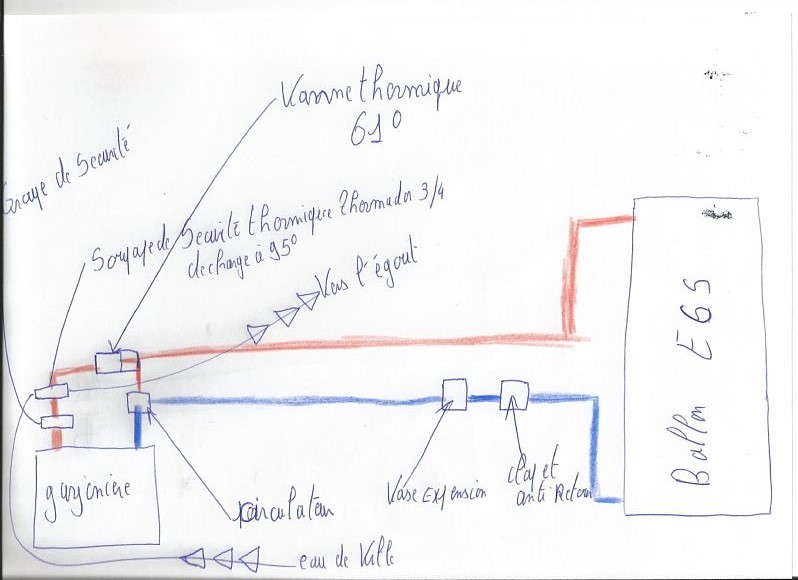 Vanne thermique
61°
de Securité
Soupape de Securité thermique Thermador 3/4
decharge à 95°
Vers l'égout
Ballon EGS
gazinière
circulateur
Vase Expension
clapet
anti Retour
eau de Ville